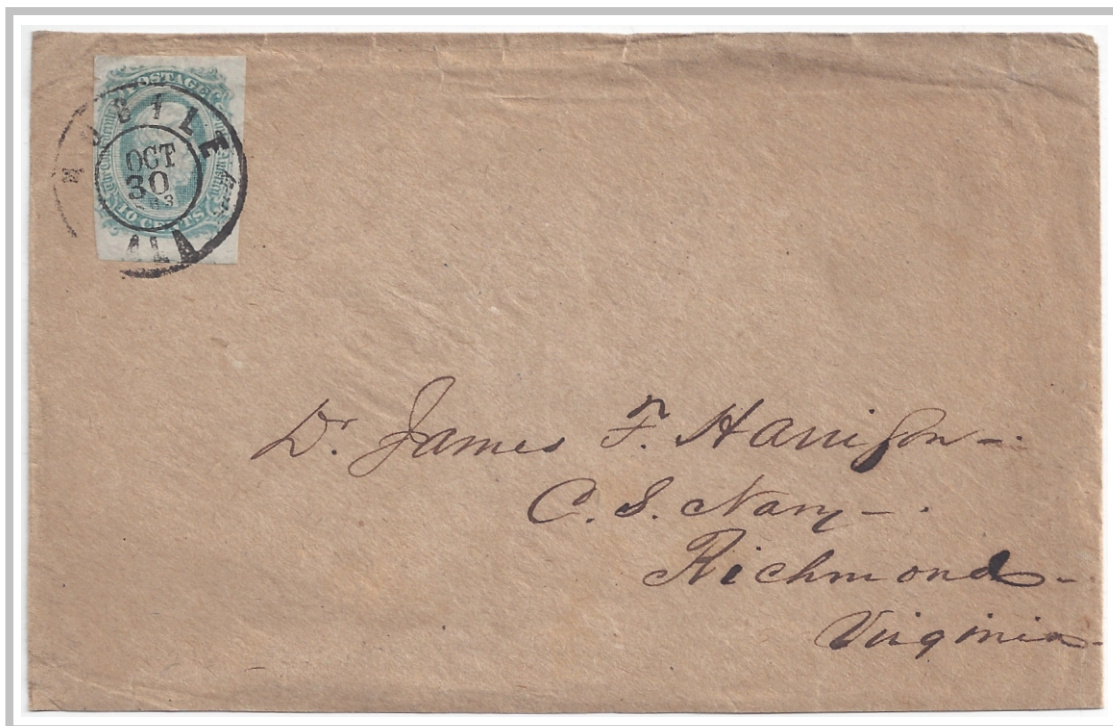 POSTAGE
10 CENTS
MOBILE
OCT
30
ALA
Dr. James F. Harrison -
C. S. Navy - .
Richmond -
Virginia -